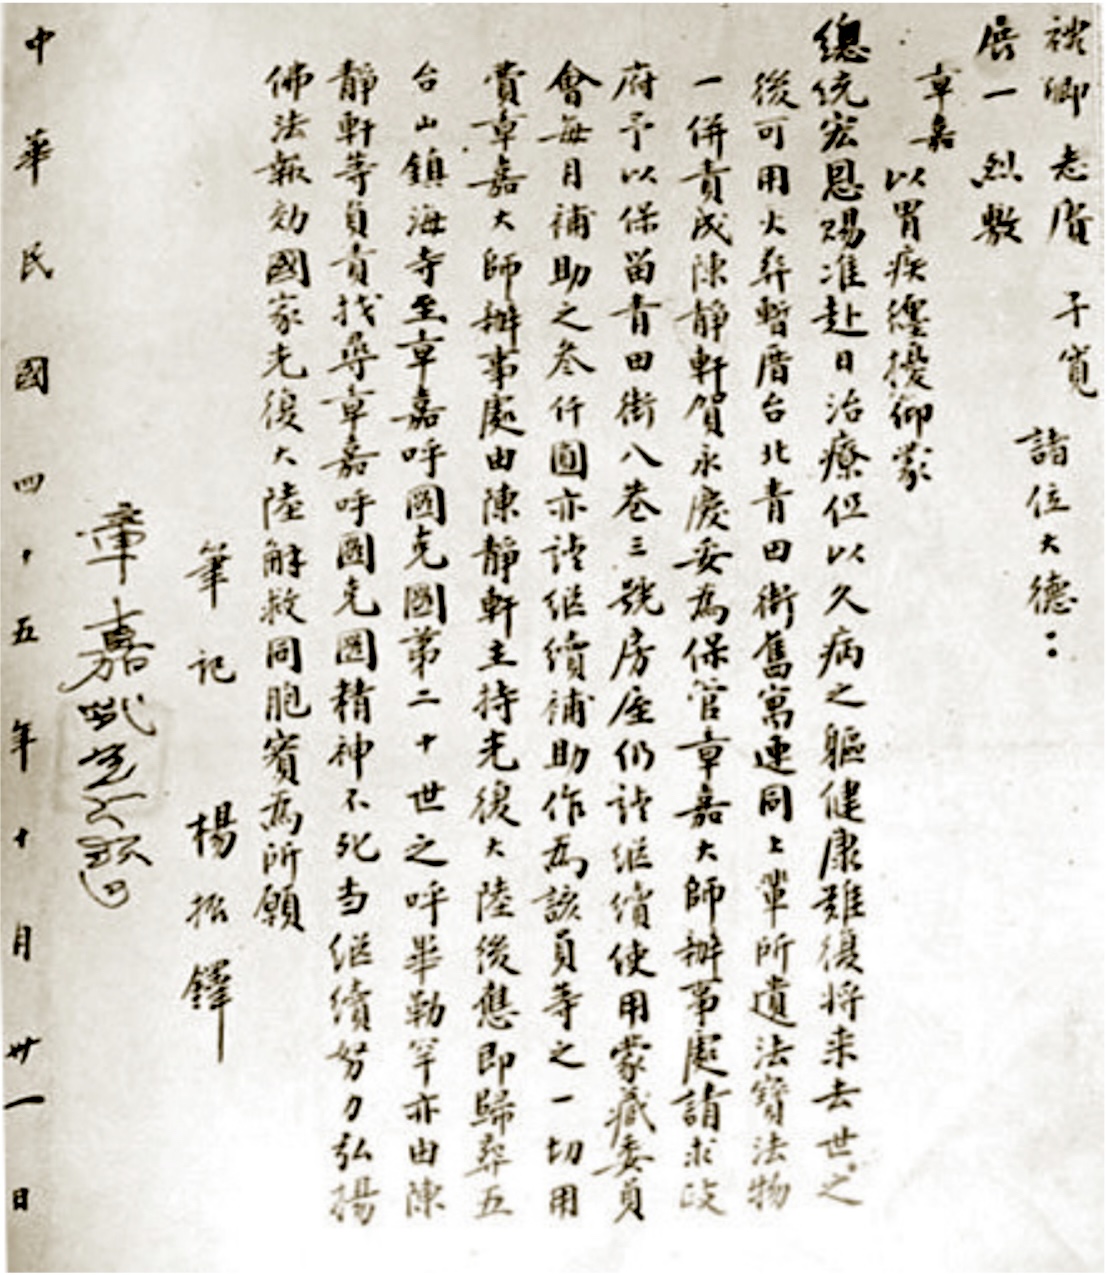 禐卿老居 子寬
展一 烈敷 諸位大德：
章嘉以胃疾纏擾仰蒙
總統宏恩賜准赴日治療但以久病之軀健康難復將来去世之
後可用火葬暫厝台北青田街舊寓連同上輩所遺法寶法物
一併責成陳靜軒賀永慶妥為保官章嘉大師辦事處請求政
府予以保留青田街八巷三號房座仍請继續使用蒙藏委員
會每月補助之叁仟圓亦請继續補助作為該員等之一切用
費章嘉大師辦事處由陳靜軒主持光復大陸後應即歸葬五
台山鎮海寺至章嘉呼國克圖第二十世之呼畢勒罕亦由陳
靜軒等負責找尋章嘉呼圖克圖精神不死当继續努力弘揚
佛法報効國家光復大陸解救同胞實為所願
筆記 楊振鐸
章嘉
中華民國四十五年十月卅一日